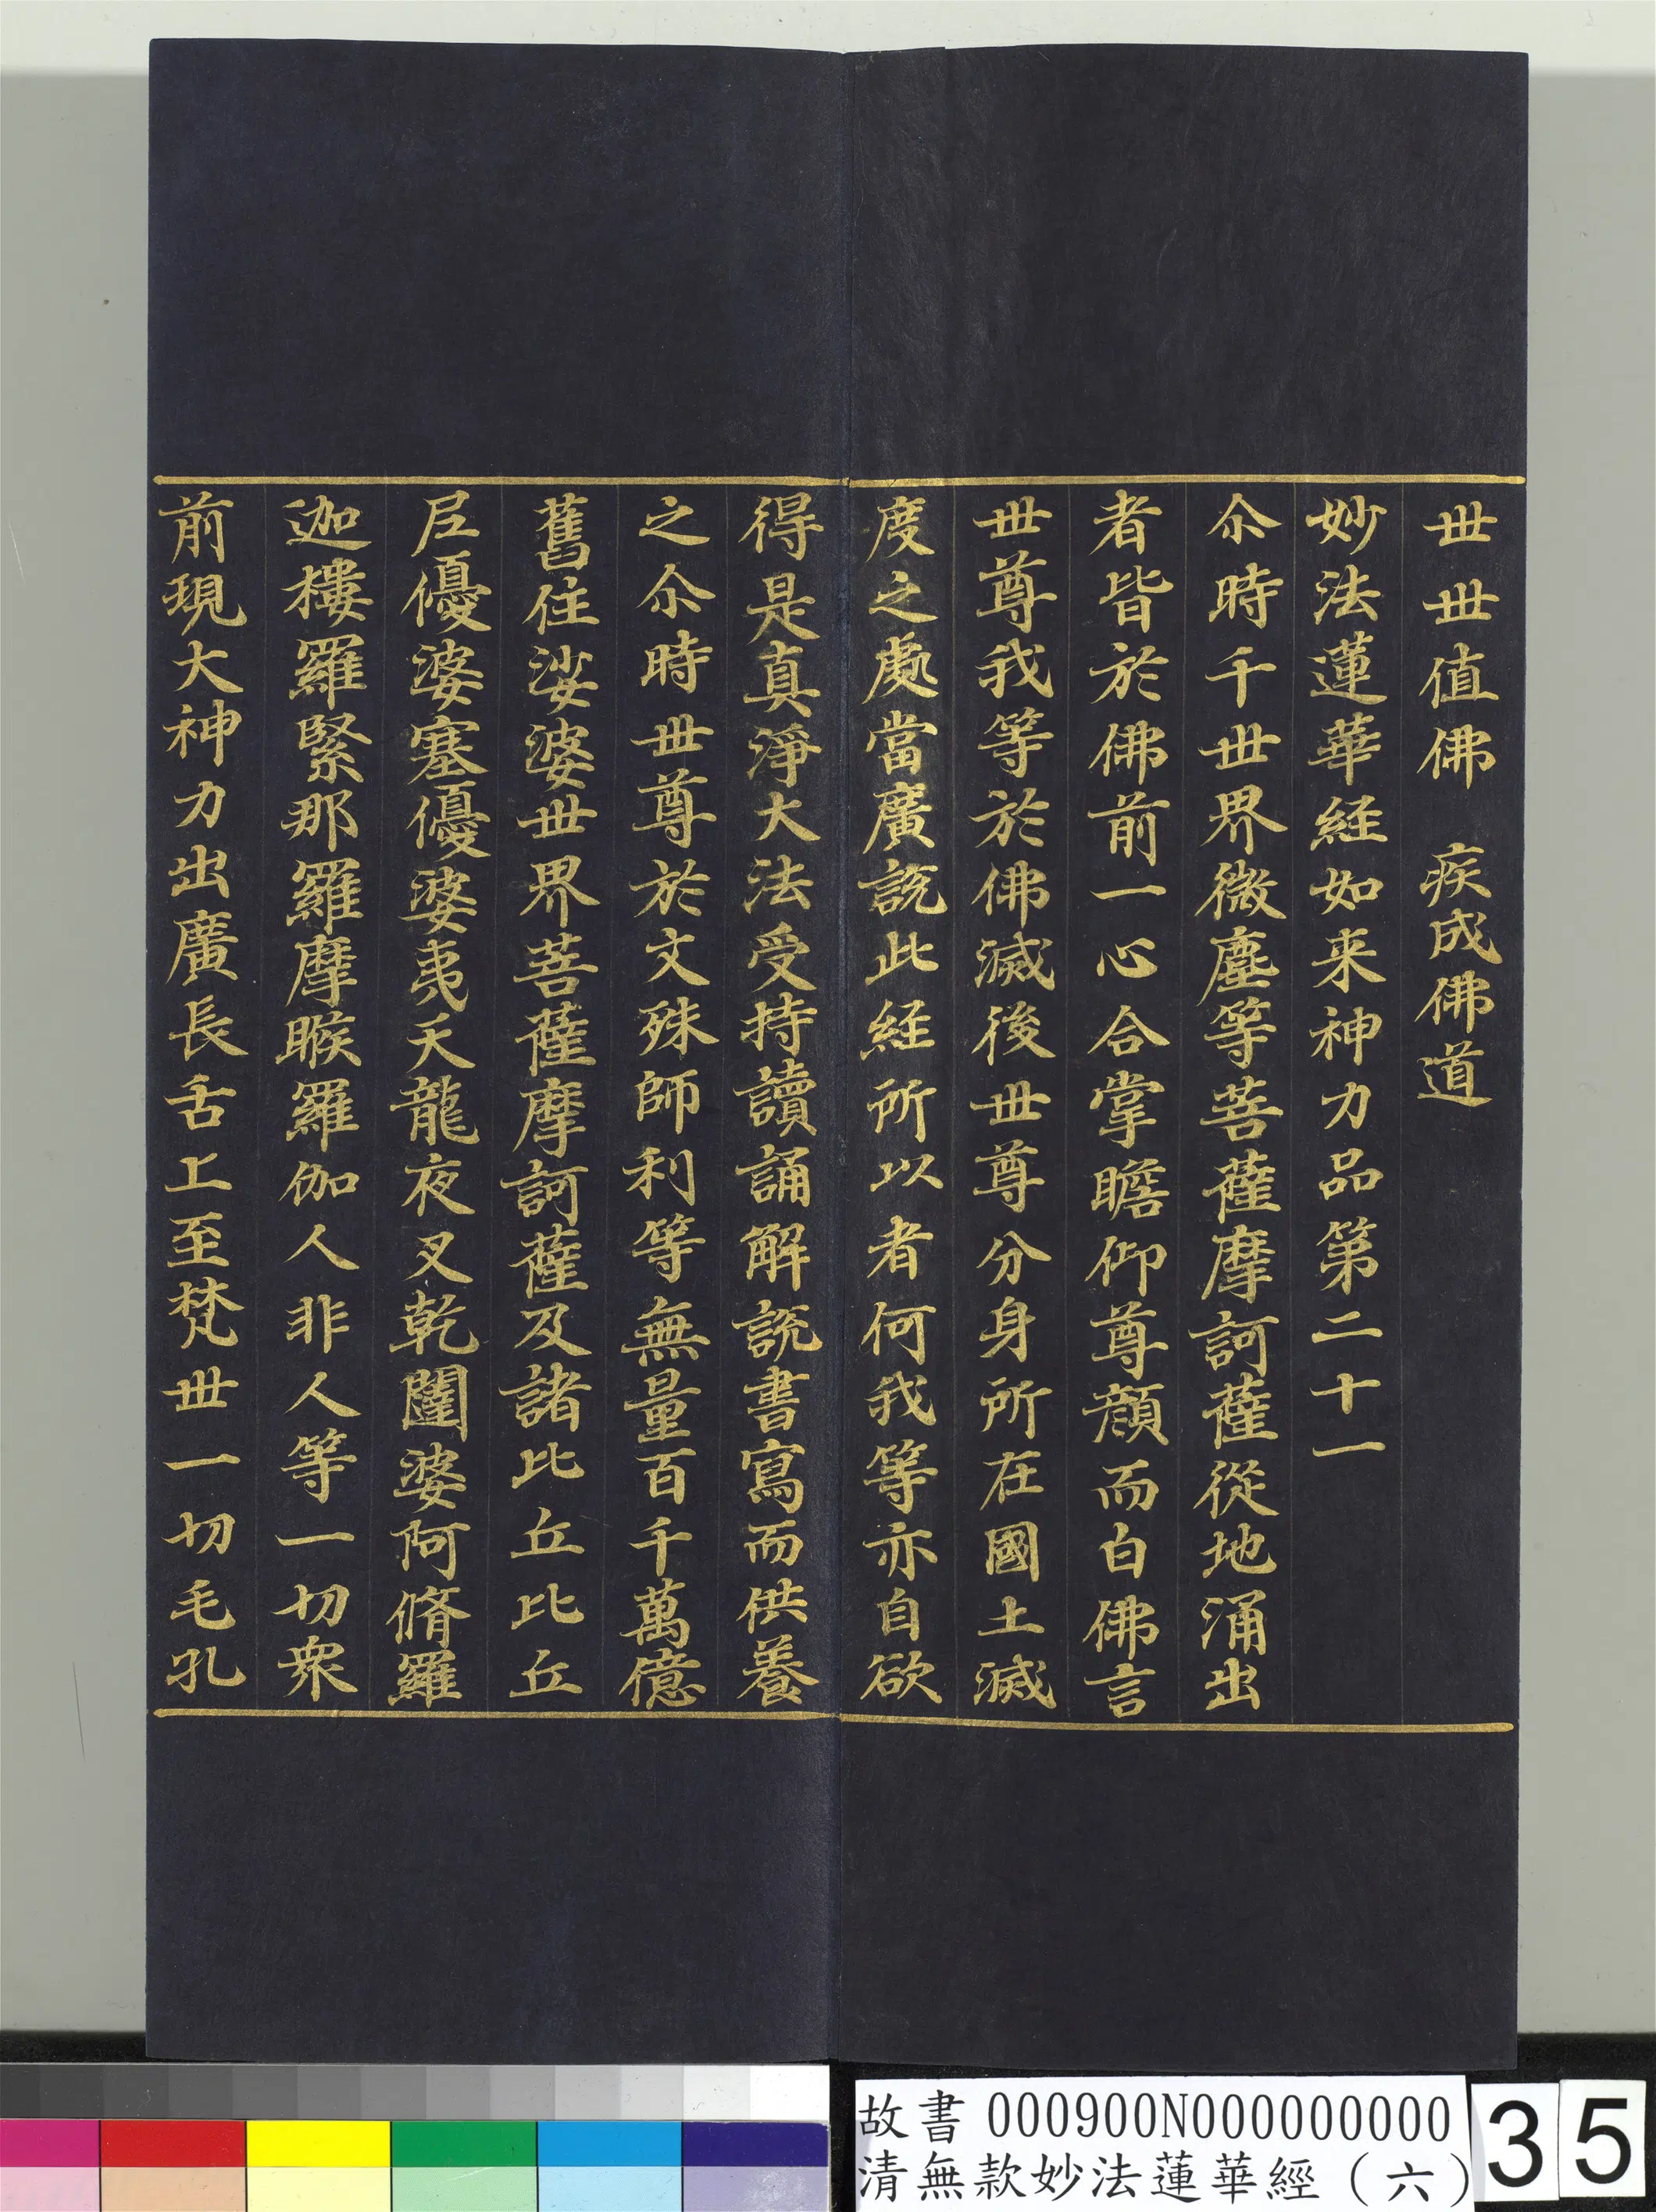 世世值佛　疾成佛道
妙法蓮華經如来神力品第二十一
尒時千世界微塵等菩薩摩訶薩從地涌出
者皆於佛前一心合掌瞻仰尊顏而白佛言
世尊我等於佛滅後世尊分身所在國土滅
度之處當廣説此經所以者何我等亦自欲
得是真淨大法受持讀誦解説書寫而供養
之尒時世尊於文殊師利等無量百千萬億
舊住娑婆世界菩薩摩訶薩及諸比丘比丘
尼優婆塞優婆夷天龍夜叉乾闥婆阿脩羅
迦樓羅緊那羅摩睺羅伽人非人等一切衆
前現大神力出廣長舌上至梵世一切毛孔
故書 000900N000000000
清無款妙法蓮華經（六）
35